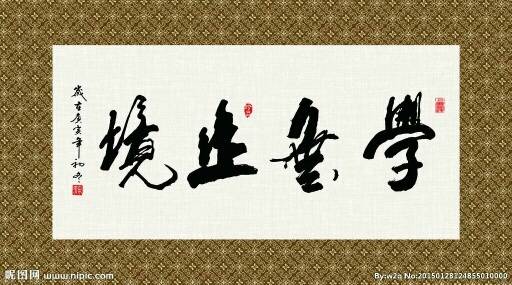 學無止境
歲在庚寅年初冬
昵图网 www.nipic.com
By:w2q No:20150128124855010000